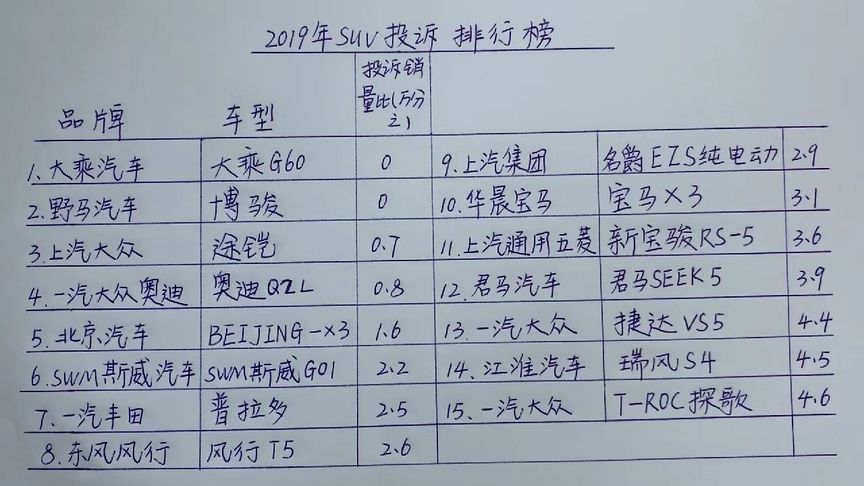 2019年SUV投诉排行榜
品牌 车型 投诉销量比(万分之)
1.大乘汽车 大乘G60 0 9.上汽集团 名爵EZS纯电动 2.9
2.野马汽车 博骏 0 10.华晨宝马 宝马X3 3.1
3.上汽大众 途铠 0.7 11.上汽通用五菱 新宝骏RS-5 3.6
4.一汽大众奥迪 奥迪Q2L 0.8 12.君马汽车 君马SEEK5 3.9
5.北京汽车 BEIJING-X3 1.6 13.一汽大众 捷达VS5 4.4
6.SWM斯威汽车 SWM斯威G01 2.2 14.江淮汽车 瑞风S4 4.5
7.一汽丰田 普拉多 2.5 15.一汽大众 T-ROC探歌 4.6
8.东风风行 风行T5 2.6